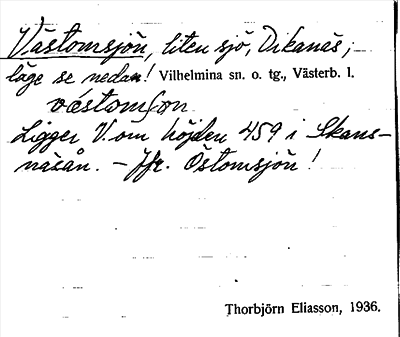 Västomsjön, liten sjö, Dikanäs;
läge se nedan! Vilhelmina sn. o. tg., Västerb. l.
Ligger V. om höjden 459 i Skans-
näsån. - Jfr. Östomsjön!
Thorbjörn Eliasson, 1936.